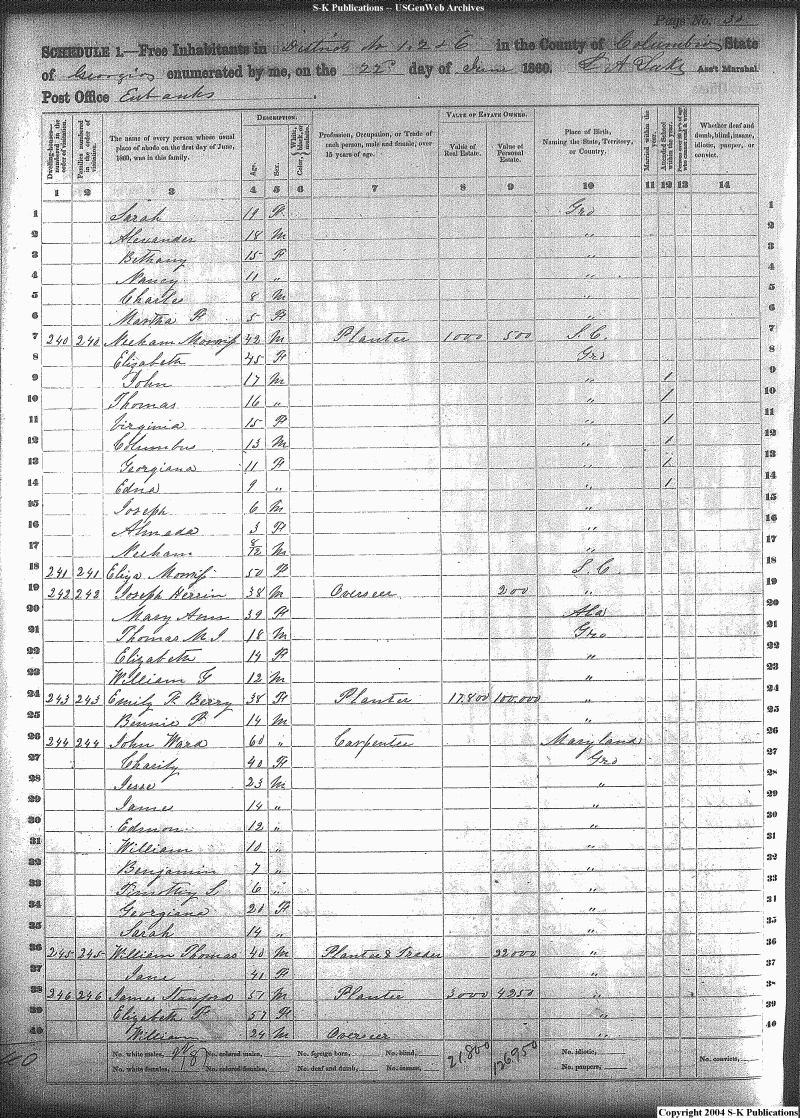 S-K Publications -- USGenWeb Archives
Page No. 30
SCHEDULE 1.—Free Inhabitants in Districts No 1, 2 & 6 in the County of Columbia State
of Georgia enumerated by me, on the 22d day of June 1860. Ass't Marshal
Post Office Eubanks
Dwelling-houses—numbered in the order of visitation.
Families numbered in the order of visitation.
The name of every person whose usual place of abode on the first day of June, 1860, was in this family.
DESCRIPTION.
Age.
Sex.
Color, White, black, or mulatto.
Profession, Occupation, or Trade of each person, male and female, over 15 years of age.
VALUE OF ESTATE OWNED.
Value of Real Estate.
Value of Personal Estate.
Place of Birth, Naming the State, Territory, or Country.
Married within the year.
Attended School within the year.
Whether deaf and dumb, blind, insane, idiotic, pauper, or convict.
1 2 3 4 5 6 7 8 9 10 11 12 13 14
1 Sarah 19 F Geo 1
2 Alexander 18 M " 2
3 Bethany 15 F " 3
4 Nancy 11 " " 4
5 Charles 8 M " 5
6 Martha F 5 F " 6
7 240 240 Neeham Morris 42 M Planter 1000 500 S. C. 7
8 Elizabeth 45 F Geo 8
9 John 17 M " 1 9
10 Thomas 16 " " 1 10
11 Virginia 15 F " 1 11
12 Columbus 13 M " 1 12
13 Georgiana 11 F " 1 13
14 Edna 9 " " 1 14
15 Joseph 6 M " 15
16 Almeda 3 F " 16
17 Neeham 8/12 M " 17
18 241 241 Eliza Morris 50 F S. C 18
19 242 242 Joseph Herrin 38 M Overseer 200 " 19
20 Mary Ann 39 F Ala 20
21 Thomas M J 18 M Geo 21
22 Elizabeth 14 F " 22
23 William G 12 M " 23
24 243 243 Emily F. Berry 38 F Planter 17.800 100.000 " 24
25 Bennie P. 14 M " 25
26 244 244 John Ward 60 " Carpenter Maryland 26
27 Charity 40 F Geo 27
28 Jesse 23 M " 28
29 James 14 " " 29
30 Edmon 12 " " 30
31 William 10 " " 31
32 Benjamin 7 " " 32
33 Timothy S. 6 " " 33
34 Georgiana 20 F " 34
35 Sarah 14 " " 35
36 245 245 William Thomas 40 M Planter & Trader 22000 " 36
37 Jane 41 F " 37
38 246 246 James Stanford 51 M Planter 3000 4250 " 38
39 Elizabeth F 57 F " 39
40 William 24 M Overseer " 40
No. white males, No. colored males, No. foreign born, No. blind, 21.800 126950 No. idiotic, No. convicts,
No. white females, 18 No. colored females, No. deaf and dumb, No. insane, No. paupers,
40
Copyright 2004 S-K Publications